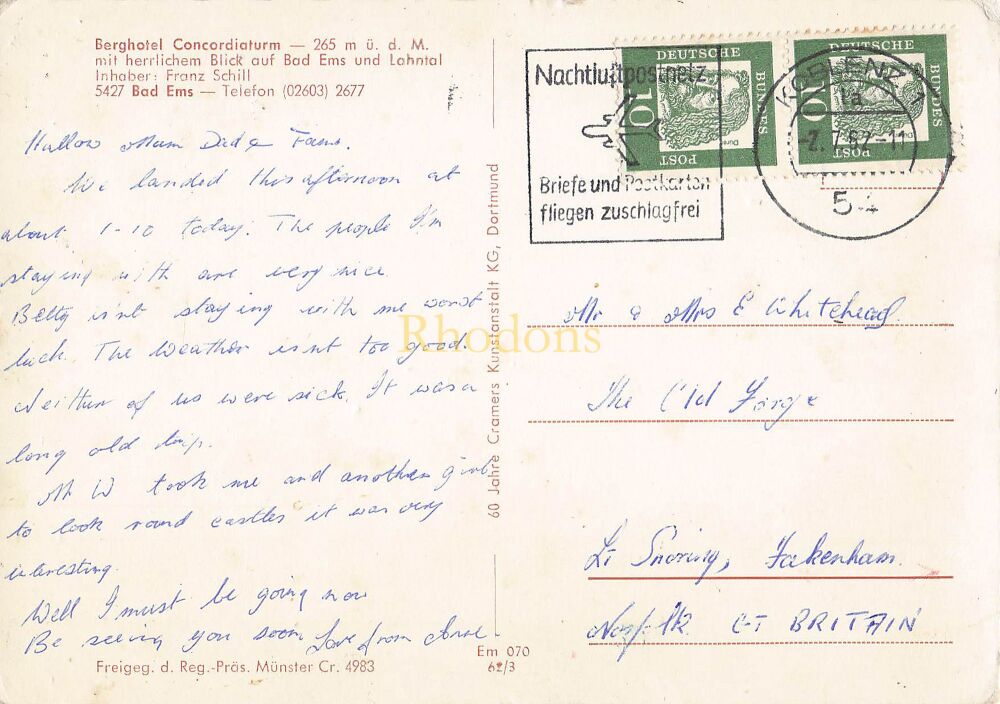 Berghotel Concordiaturm — 265 m ü. d. M.
mit herrlichem Blick auf Bad Ems und Lahntal
Inhaber: Franz Schill
5427 Bad Ems — Telefon (02603) 2677
Hullow Mum Dad &
We landed this afternoon at
about 1-10 today. The people I'm
staying with are very nice.
Betty isn't staying with me worst
luck. The weather isnt too good.
Neither of us were sick. It was a
long old trip.
Mr W took me and another girl
to look round castles it was very
interesting.
Well I must be going now
Be seeing you soon Love from Anne.
Freigeg. d. Reg.-Präs. Münster Cr. 4983
Em 070
62/3
60 Jahre Cramers Kunstanstalt KG, Dortmund
Rhodons
Nachtluftpostnetz
Briefe und Postkarten
fliegen zuschlagfrei
DEUTSCHE
BUNDES
POST
10
Dürer
DEUTSCHE
BUNDES
POST
10
KOBLENZ 1
1a
-2. 7. 67 -11
Mr & Mrs E Whitehead
The Old Forge
Lt Snoring, Fakenham.
Norfolk GT BRITAIN